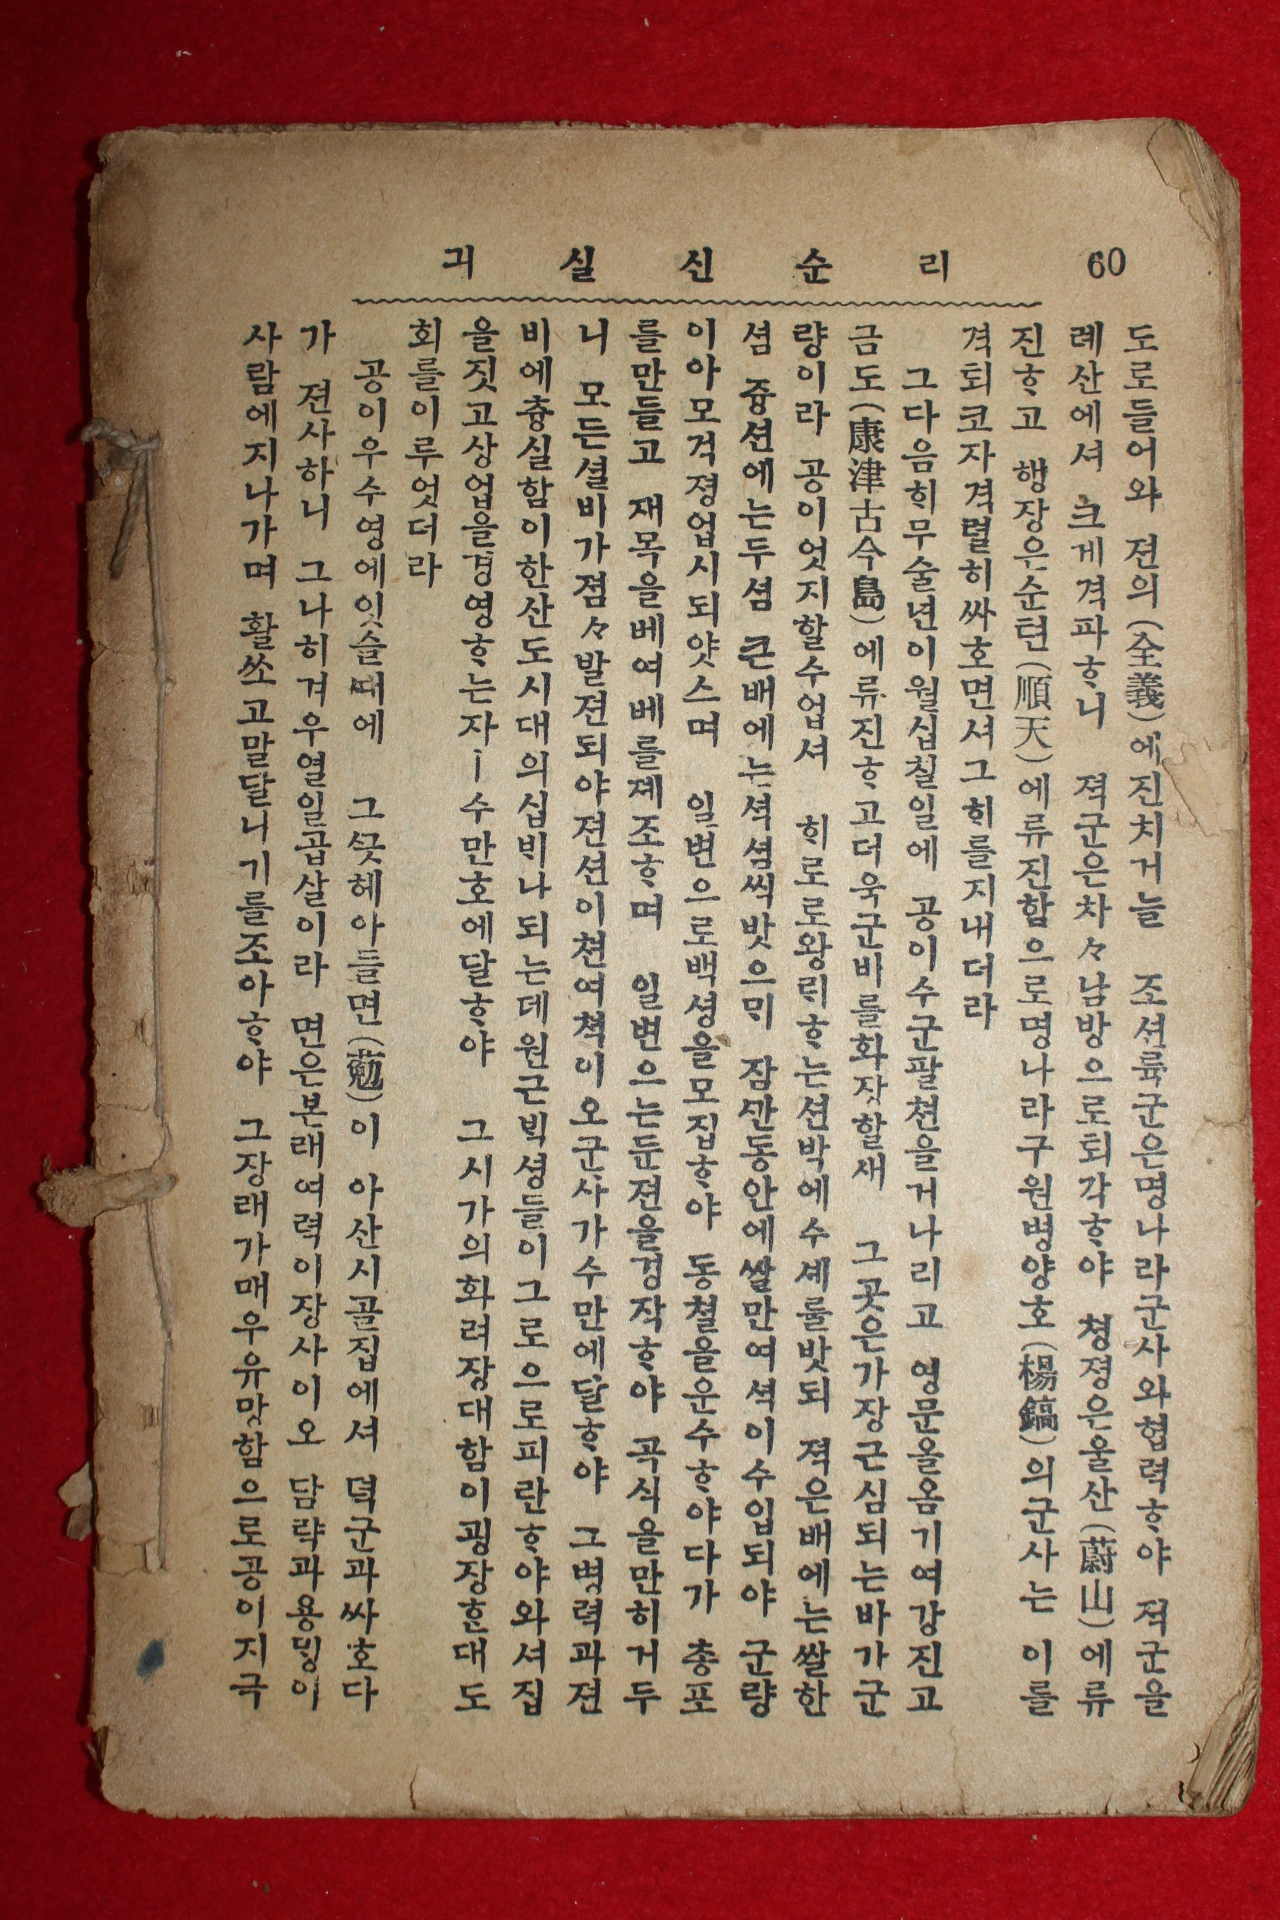 60
리순신실긔
도로들어와 젼의(全義)에진치거늘 조션륙군은명나라군사와협력ᄒᆞ야 적군을
례산에셔 크게격파ᄒᆞ니 젹군은차々남방으로퇴각ᄒᆞ야 쳥졍은울산(蔚山)에류
진ᄒᆞ고 행장은순텬(順天)에류진함으로명나라구원병양호(楊鎬)의군사는 이를
격퇴코자격렬히싸호면셔그ᄒᆡ를지내더라
그다음ᄒᆡ무술년이월십칠일에 공이수군팔쳔을거나리고 영문을옴기여강진고
금도(康津古今島)에류진ᄒᆞ고더욱군비를확쟝할새 그곳은가장근심되는바가군
량이라 공이엇지할수업셔 ᄒᆡ로로왕ᄅᆡᄒᆞ는션박에수셰를밧되 젹은배에는쌀한
셤 즁션에는두셤 큰배에는셕셤씩밧으ᄆᆡ 잠ᄭᅡᆫ동안에쌀만여셕이수입되야 군량
이아모걱졍업시되얏스며 일변으로백셩을모집ᄒᆞ야 동쳘을운수ᄒᆞ야다가 총포
를만들고 재목을베여배를졔조ᄒᆞ며 일변으는둔젼을경작ᄒᆞ야 곡식을만히거두
니 모든셜비가졈々발젼되야젼션이쳔여쳑이오군사가수만에달ᄒᆞ야 그병력과젼
비에츙실함이한산도시대의십ᄇᆡ나되는데원근ᄇᆡᆨ셩들이그로으로피란ᄒᆞ야와셔집
을짓고상업을경영ᄒᆞ는자ㅣ수만호에달ᄒᆞ야 그시가의화려장대함이굉장ᄒᆞᆫ대도
회를이루엇더라
공이우수영에잇슬ᄯᅢ에 그ᄭᅳᆺ헤아들면(葂)이 아산시골집에셔 뎍군과싸호다
가 젼사하니 그나히겨우열일곱살이라 면은본래여력이장사이오 담략과용ᄆᆡᆼ이
사람에지나가며 활쏘고말달니기를조아ᄒᆞ야 그장래가매우유망함으로공이지극